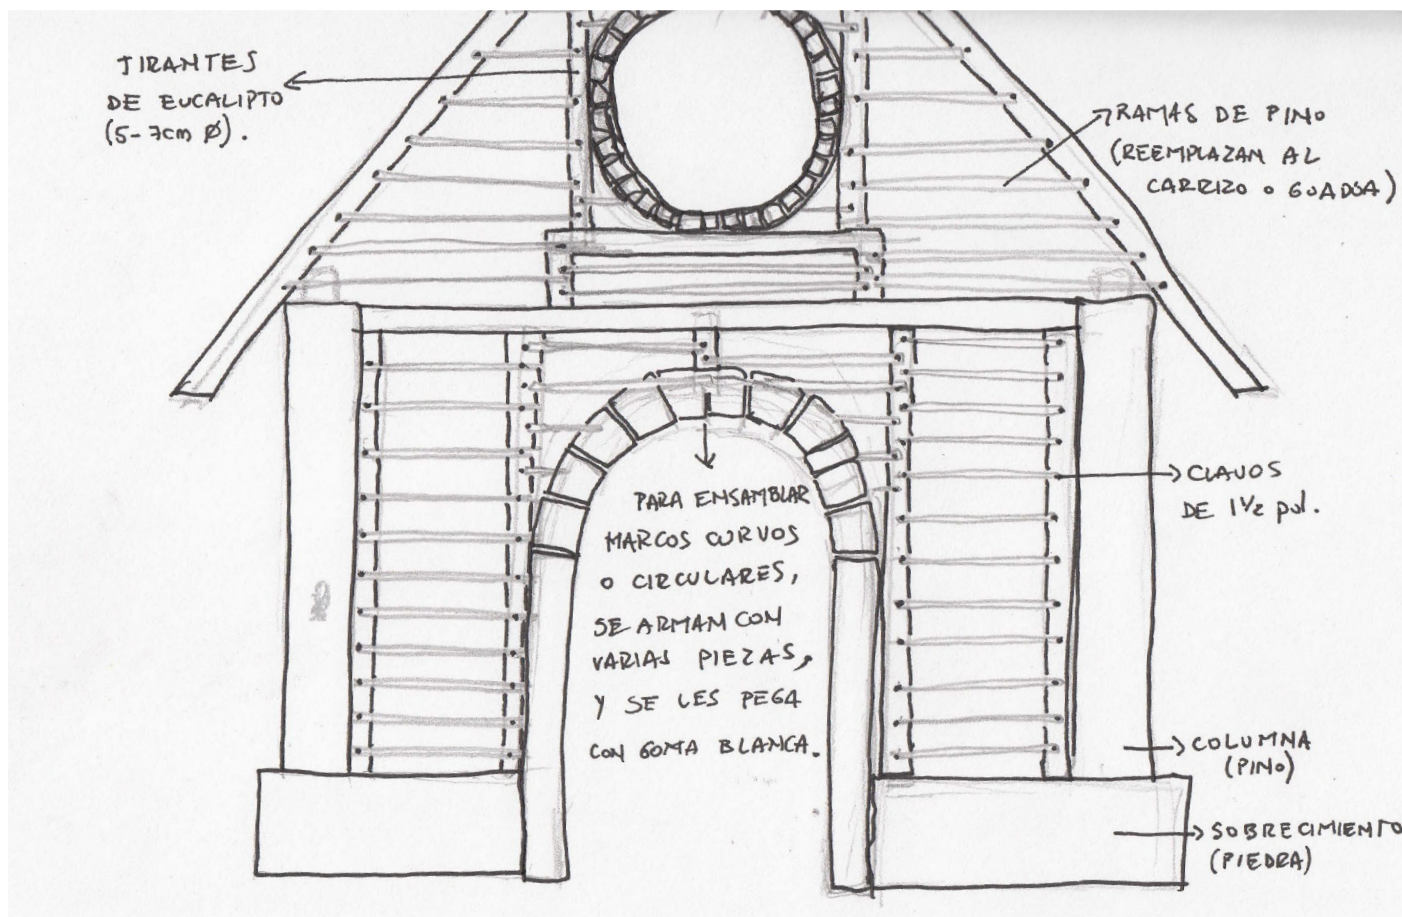 TIRANTES
DE EUCALIPTO
(5-7cm Ø).
RAMAS DE PINO
(REEMPLAZAN AL
CARRIZO O GUADUA)
CLAVOS
DE 1½ pul.
PARA ENSAMBLAR
MARCOS CURVOS
O CIRCULARES,
SE ARMAN CON
VARIAS PIEZAS,
Y SE LES PEGA
CON GOMA BLANCA.
COLUMNA
(PINO)
SOBRECIMIENTO
(PIEDRA)